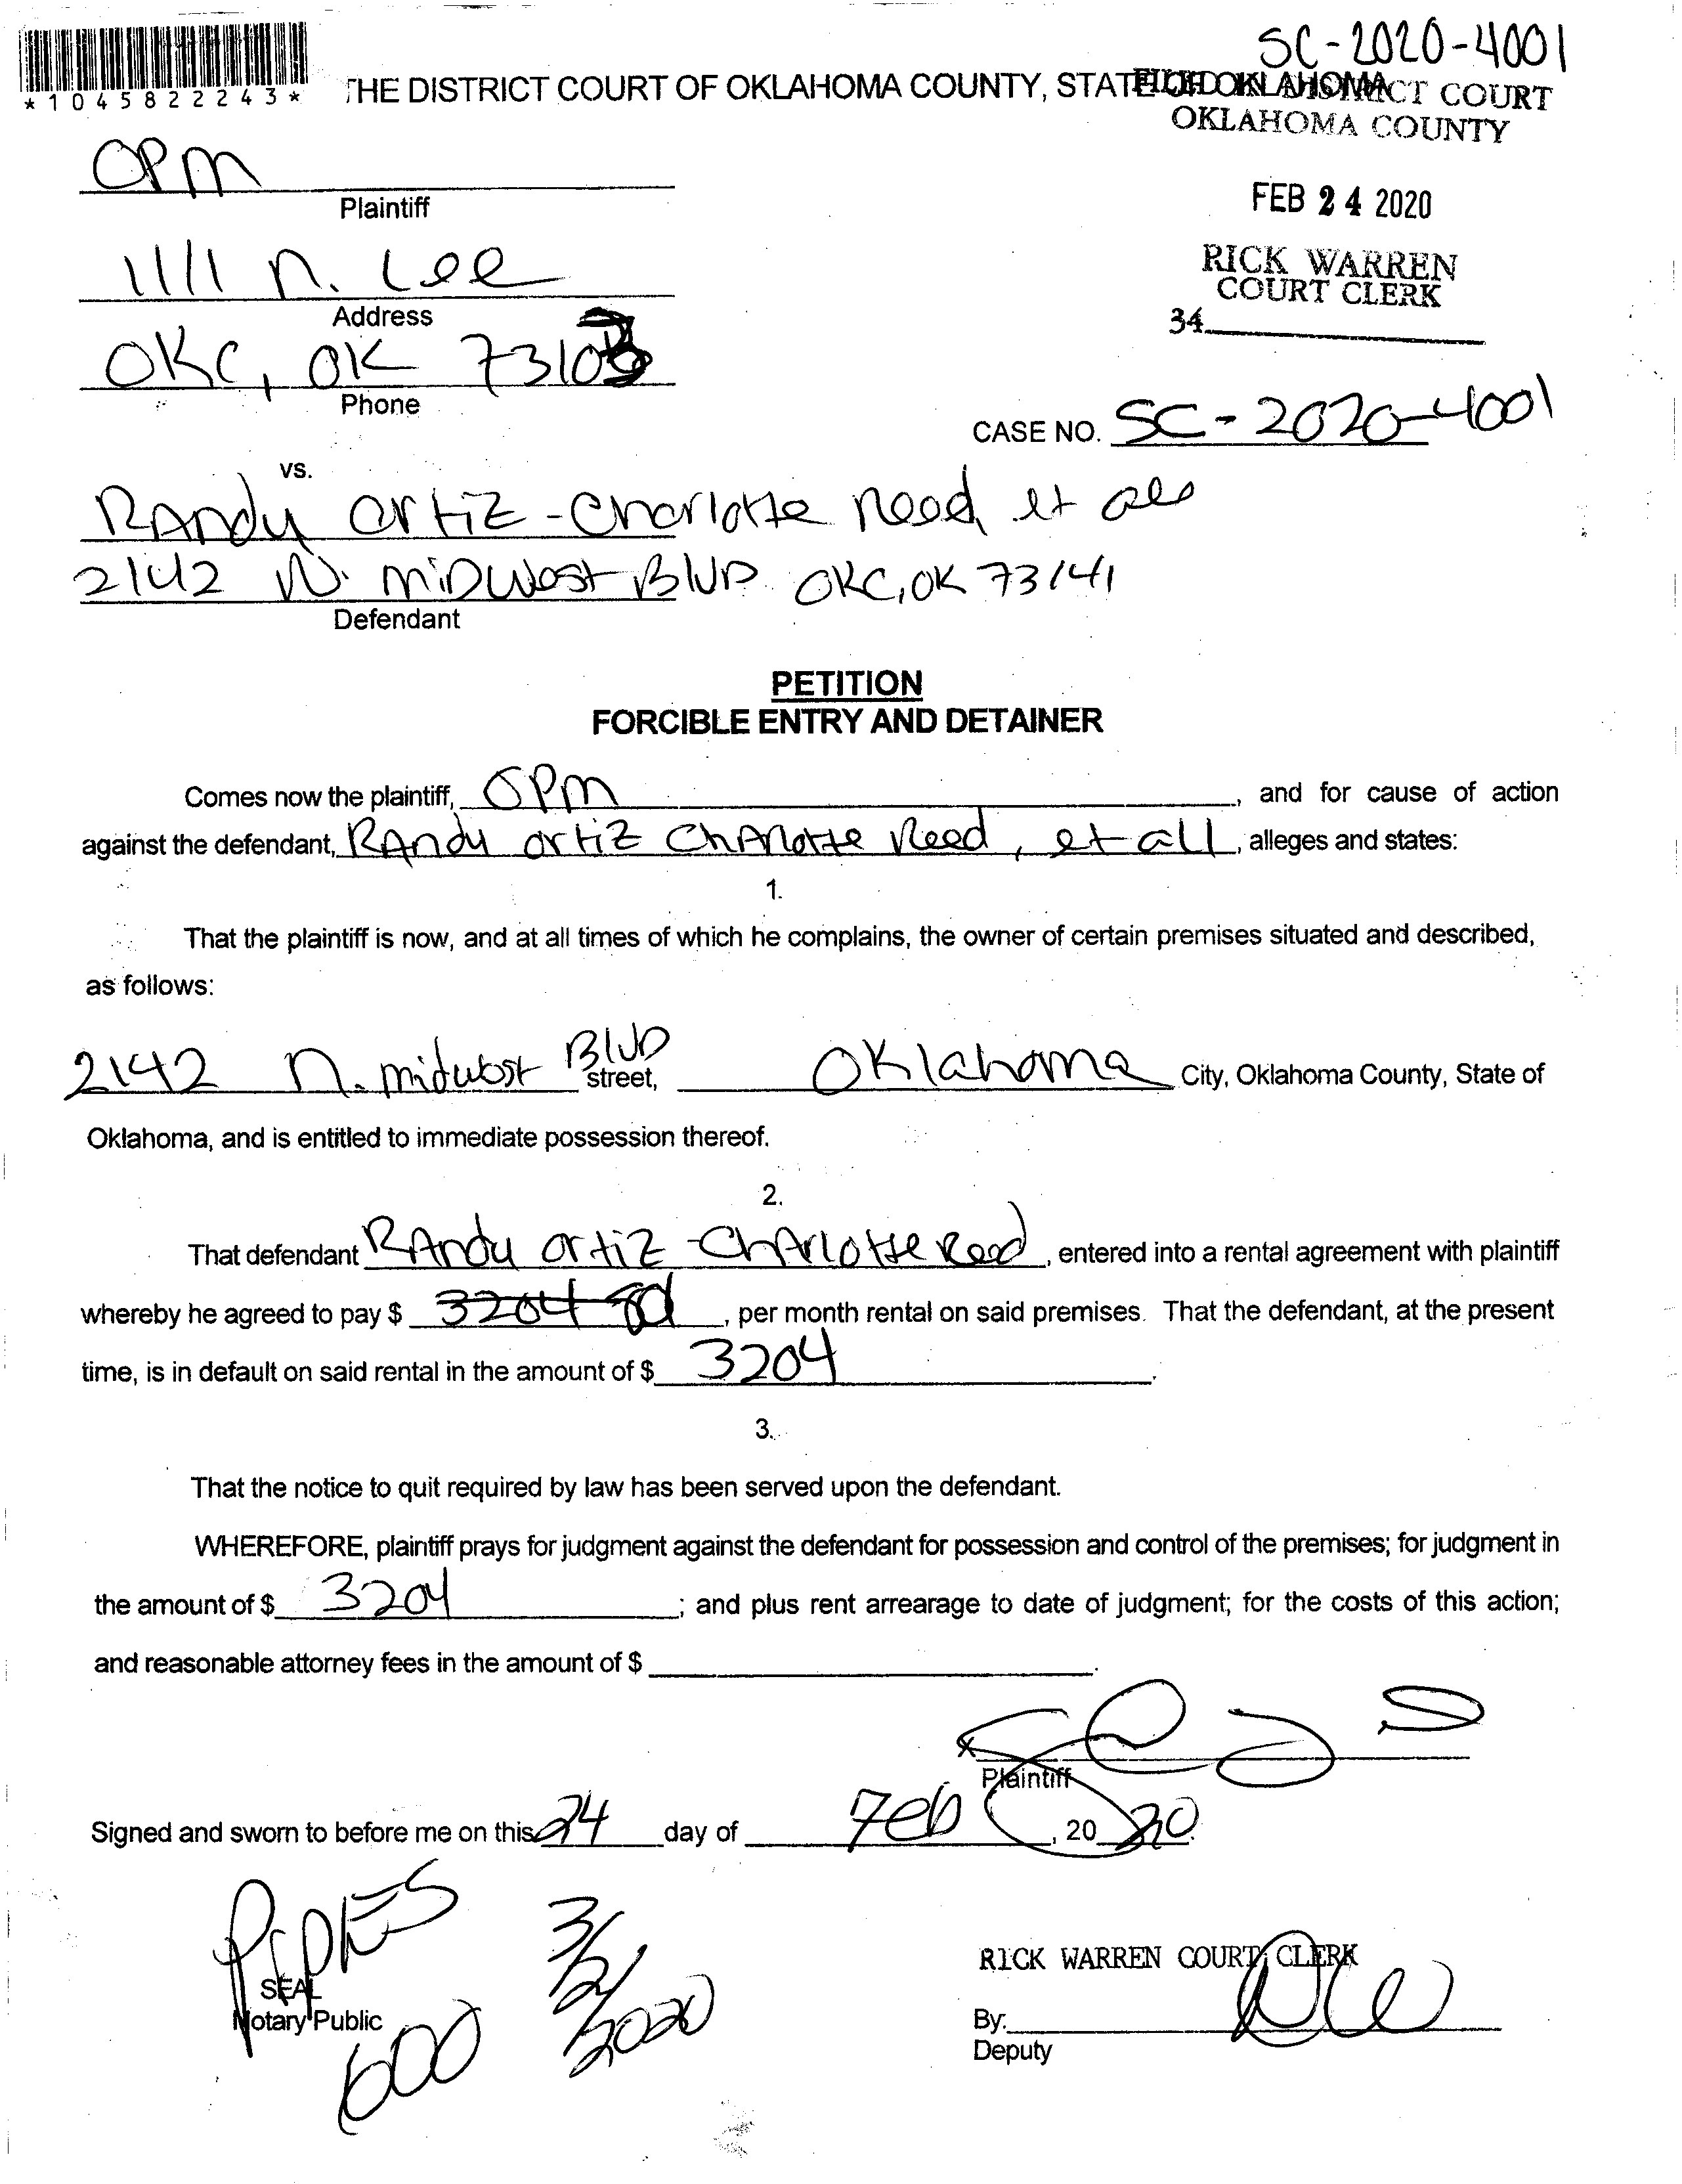 SC-2020-4001
*1045822243*
THE DISTRICT COURT OF OKLAHOMA COUNTY, STATE OF OKLAHOMA
FILED IN DISTRICT COURT
OKLAHOMA COUNTY
OPM
Plaintiff
FEB 24 2020
1111 N. Lee
Address
RICK WARREN
COURT CLERK
34
OKC, OK 73103
Phone
CASE NO. SC-2020-4001
vs.
RAndy ortiz - Charlotte Reed, et al
2142 N. MiDWest BLVD. OKC, OK 73141
Defendant
PETITION
FORCIBLE ENTRY AND DETAINER
Comes now the plaintiff, OPM, and for cause of action
against the defendant, RAndy ortiz ChArlotte Reed, et all, alleges and states:
1.
That the plaintiff is now, and at all times of which he complains, the owner of certain premises situated and described,
as follows:
2142 N. midwest BLVD street, Oklahoma City, Oklahoma County, State of
Oklahoma, and is entitled to immediate possession thereof.
2.
That defendant RAndy ortiz - ChArlotte Reed, entered into a rental agreement with plaintiff
whereby he agreed to pay $ 3204, per month rental on said premises. That the defendant, at the present
time, is in default on said rental in the amount of $ 3204.
3.
That the notice to quit required by law has been served upon the defendant.
WHEREFORE, plaintiff prays for judgment against the defendant for possession and control of the premises; for judgment in
the amount of $ 3204; and plus rent arrearage to date of judgment; for the costs of this action;
and reasonable attorney fees in the amount of $
x
Plaintiff
Signed and sworn to before me on this 24 day of Feb, 20 20.
SEAL
Notary Public
600
3/2/2020
RICK WARREN COURT CLERK
By:
Deputy